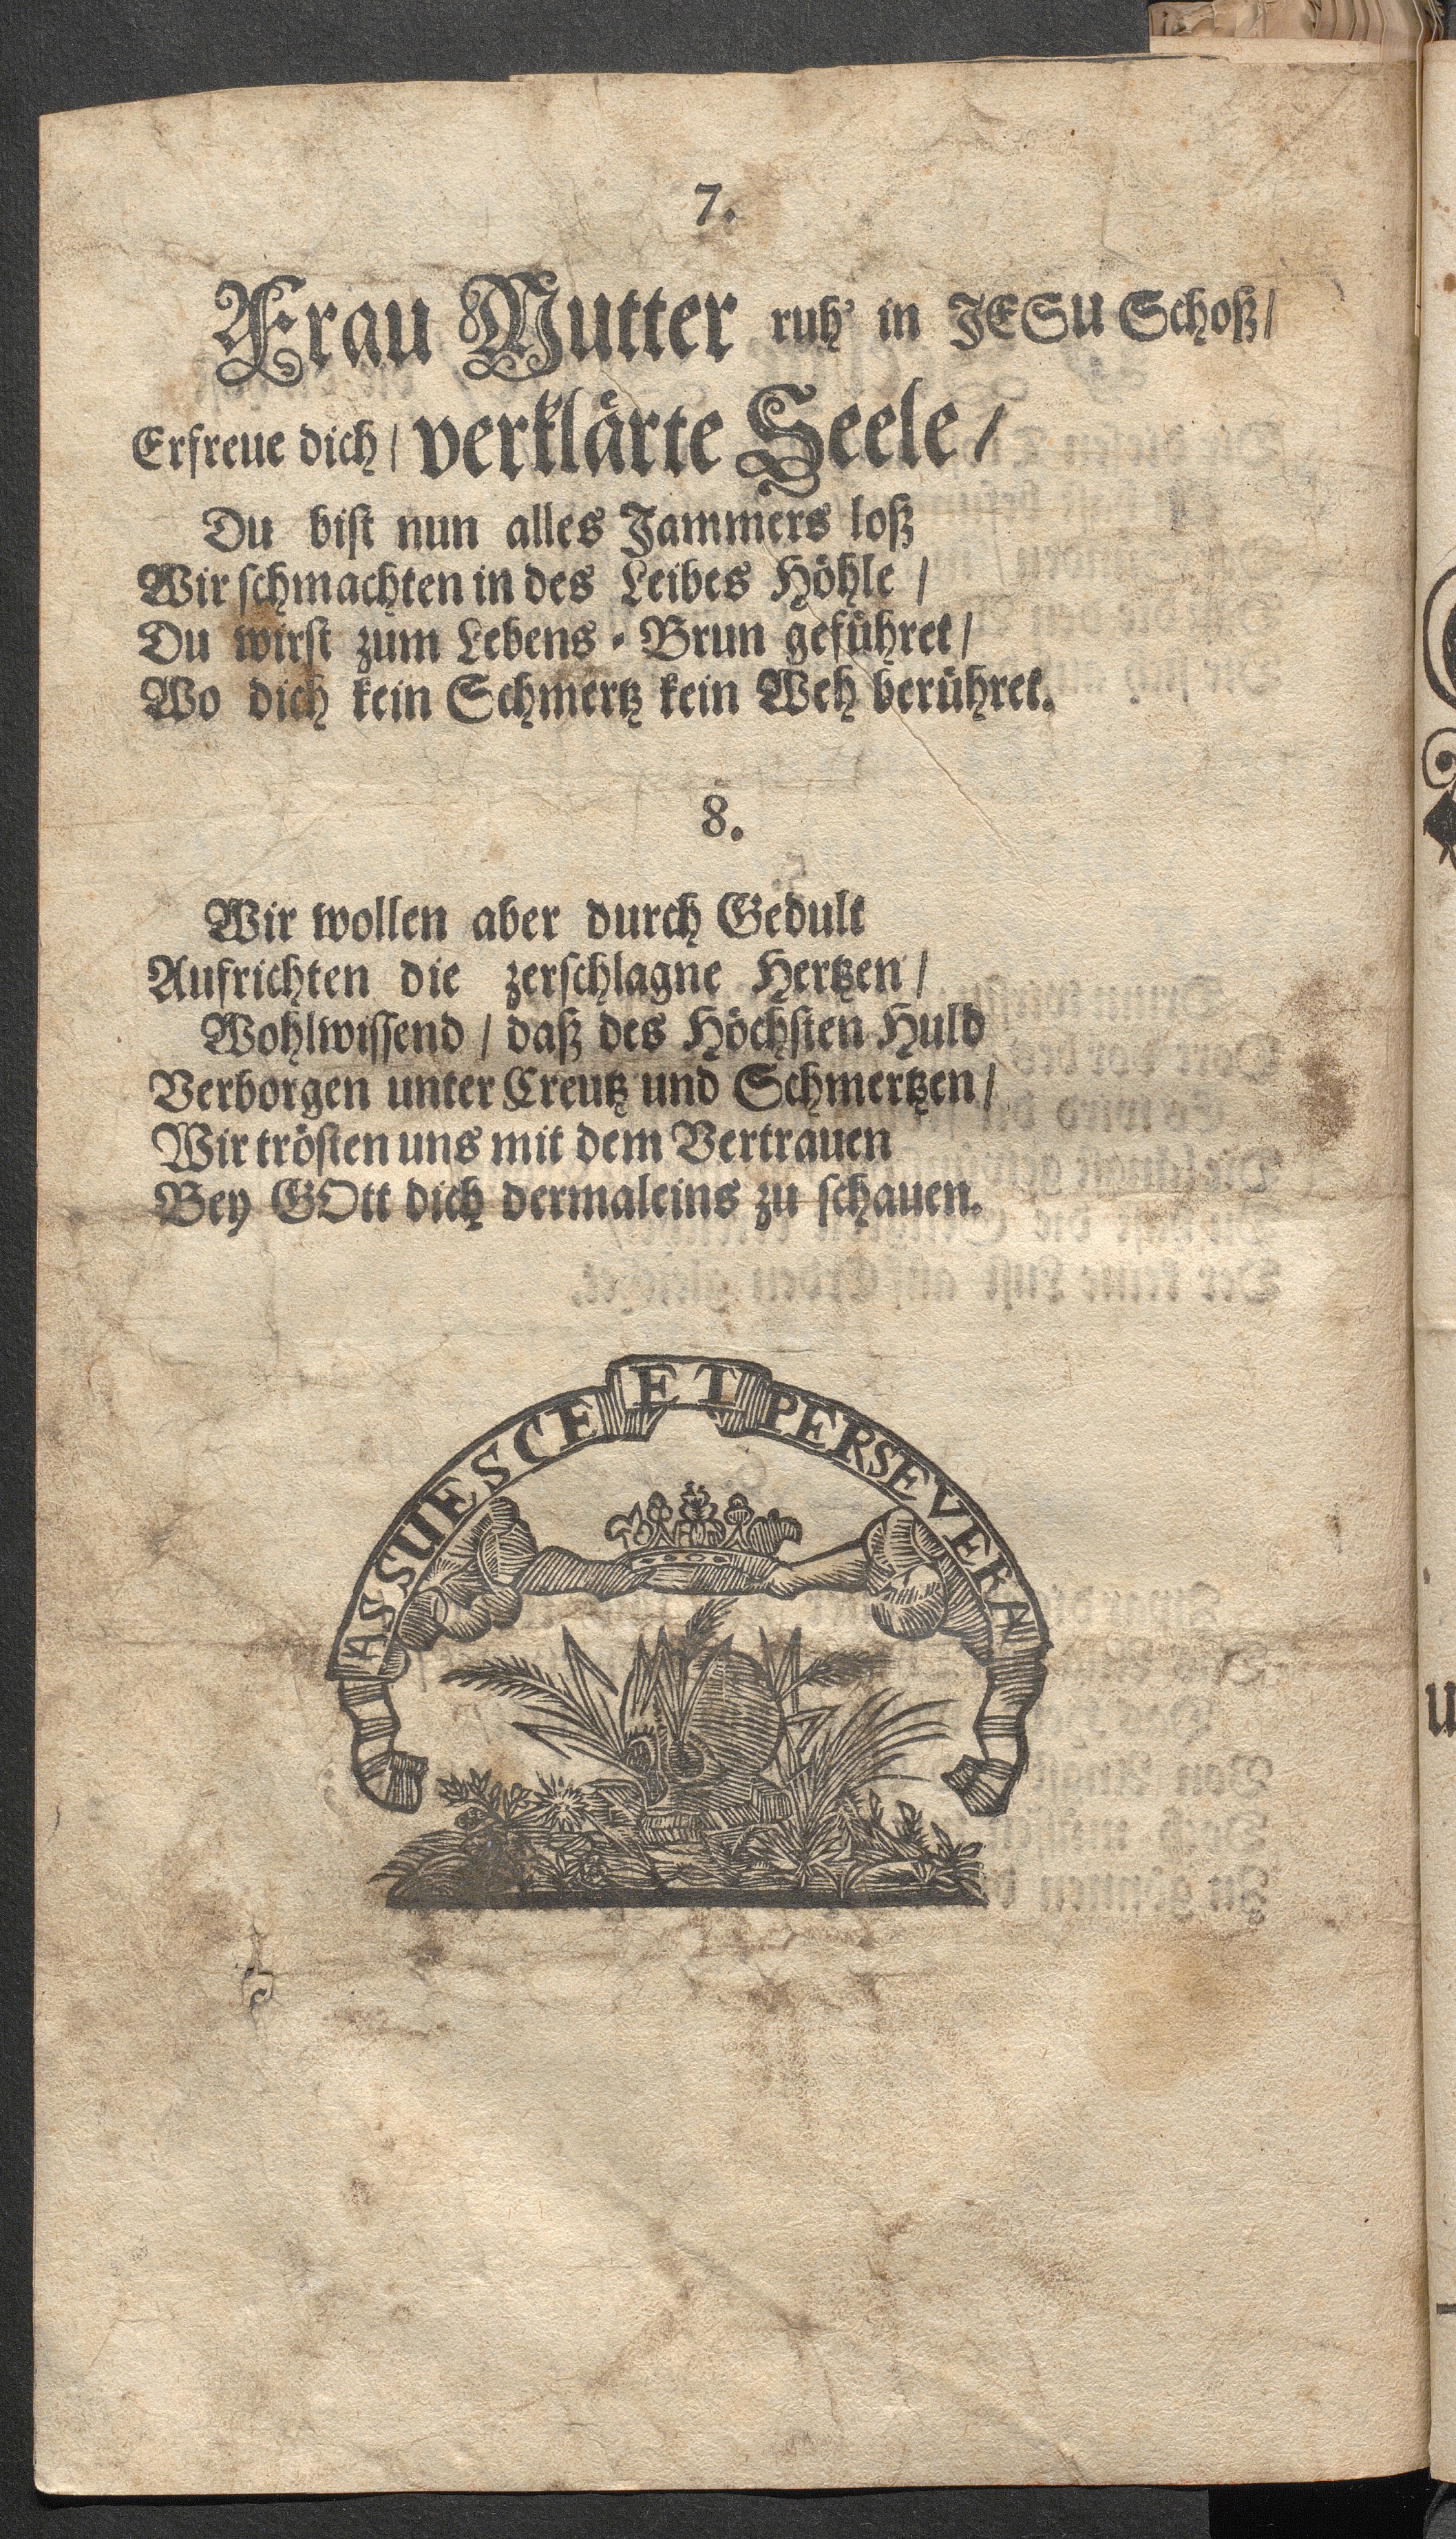 7.
Frau Mutter ruh' in JESU Schoß/
Erfreue dich/ verklärte Seele/
Du bist nun alles Jammers loß
Wir schmachten in des Leibes Höhle/
Du wirst zum Lebens-Brun geführet/
Wo dich kein Schmertz kein Weh berühret.
8.
Wir wollen aber durch Gedult
Aufrichten die zerschlagne Hertzen/
Wohlwissend/ daß des Höchsten Huld
Verborgen unter Creutz und Schmertzen/
Wir trösten uns mit dem Vertrauen
Bey GOtt dich dermaleins zu schauen.
ASSUESCE ET PERSEVERA